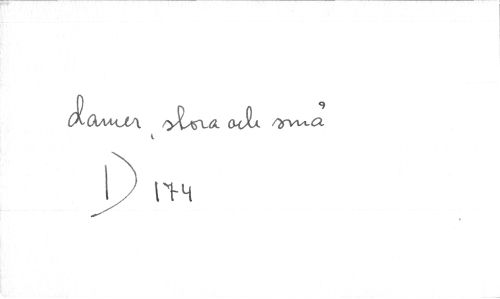 damer, stora och små
D 174